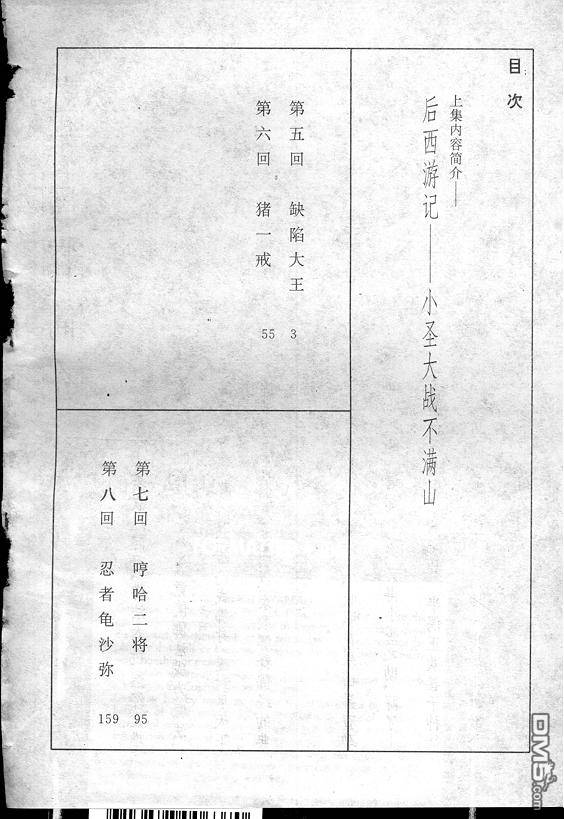 目次
上集内容简介——
后西游记——小圣大战不满山
第五回 缺陷大王 3
第六回 猪一戒 55
第七回 哼哈二将 95
第八回 忍者龟沙弥 159
DM5.com